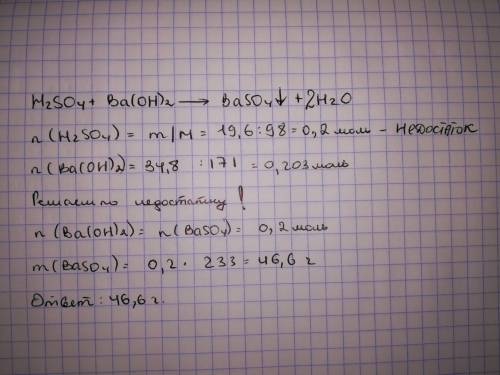 H₂SO₄ + Ba(OH)₂ ⟶ BaSO₄↓ + 2H₂O
n(H₂SO₄) = m/M = 19,6 : 98 = 0,2 моль - Недостаток
n(Ba(OH)₂) = 34,8 : 171 = 0,203 моль
Решаем по недостатку!
n(Ba(OH)₂) = n(BaSO₄) = 0,2 моль
m(BaSO₄) = 0,2 · 233 = 46,6 г
Ответ: 46,6 г.